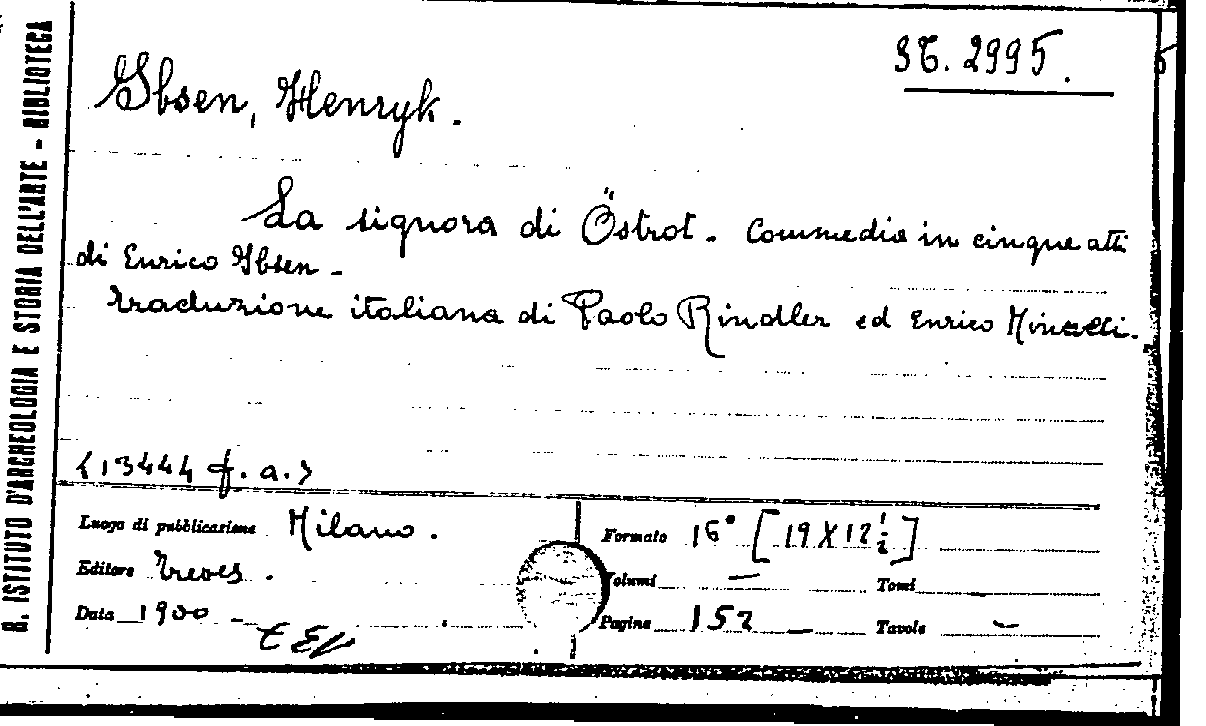 R. ISTITUTO D'ARCHEOLOGIA E STORIA DELL'ARTE - BIBLIOTECA
36. 2995.
Ibsen, Henryk.
La signora di Östrot. Commedia in cinque atti
di Enrico Ibsen -
traduzione italiana di Paolo Rindler ed Enrico Minelli.
(13444 f. a.)
Luogo di pubblicazione Milano.
Editore Treves.
Data 1900 -
Formato 16° [19 X 12 1/2]
Volumi — Tomi -
Pagine 152 — Tavole -